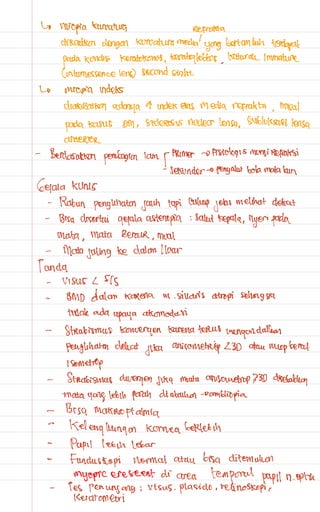 ↳ miopia kurvatur
refraksi
disebabkan dengan kurvatura media yang bertambah terdapat
pada kondisi keratokonus, keratoglobus, katarak immature
(intumescence lens) second sight.
↳ miopia indeks
disebabkan adanya ↑ indek bias media refraksi, misal
pada kasus DM, sklerosis nuclear lensa, subluksasi lensa
anterior
- Berdasarkan pembagian lain Primer → fisiologis murni refraksi
Sekunder → penyakit bola mata lain
Gejala klinis
- Rabun penglihatan jauh tapi jelas melihat dekat
- Bisa disertai gejala astenopia : sakit kepala, nyeri pada
mata, mata berair, mual
- Mata juling ke dalam / luar
Tanda
- visus < 5/5
- BMD dalam karena m. siliaris atropi sehingga
tidak ada upaya akomodasi
- Strabismus konvergen karena terus mengandalkan
penglihatan dekat jika anisometrop <3D atau miop berat
isometrop
- Strabismus divergen jika mata anisometrop >3D disebabkan
mata yang lebih parah di abaikan → ambliopia
- Bisa makroftalmia
- Kelengkungan kornea berlebih
- Pupil lebih lebar
- Funduskopi normal atau bisa ditemukan
myopic crescent di area temporal papil n.optik
- Tes penunjang : visus, placido, retinoskopi,
keratometri